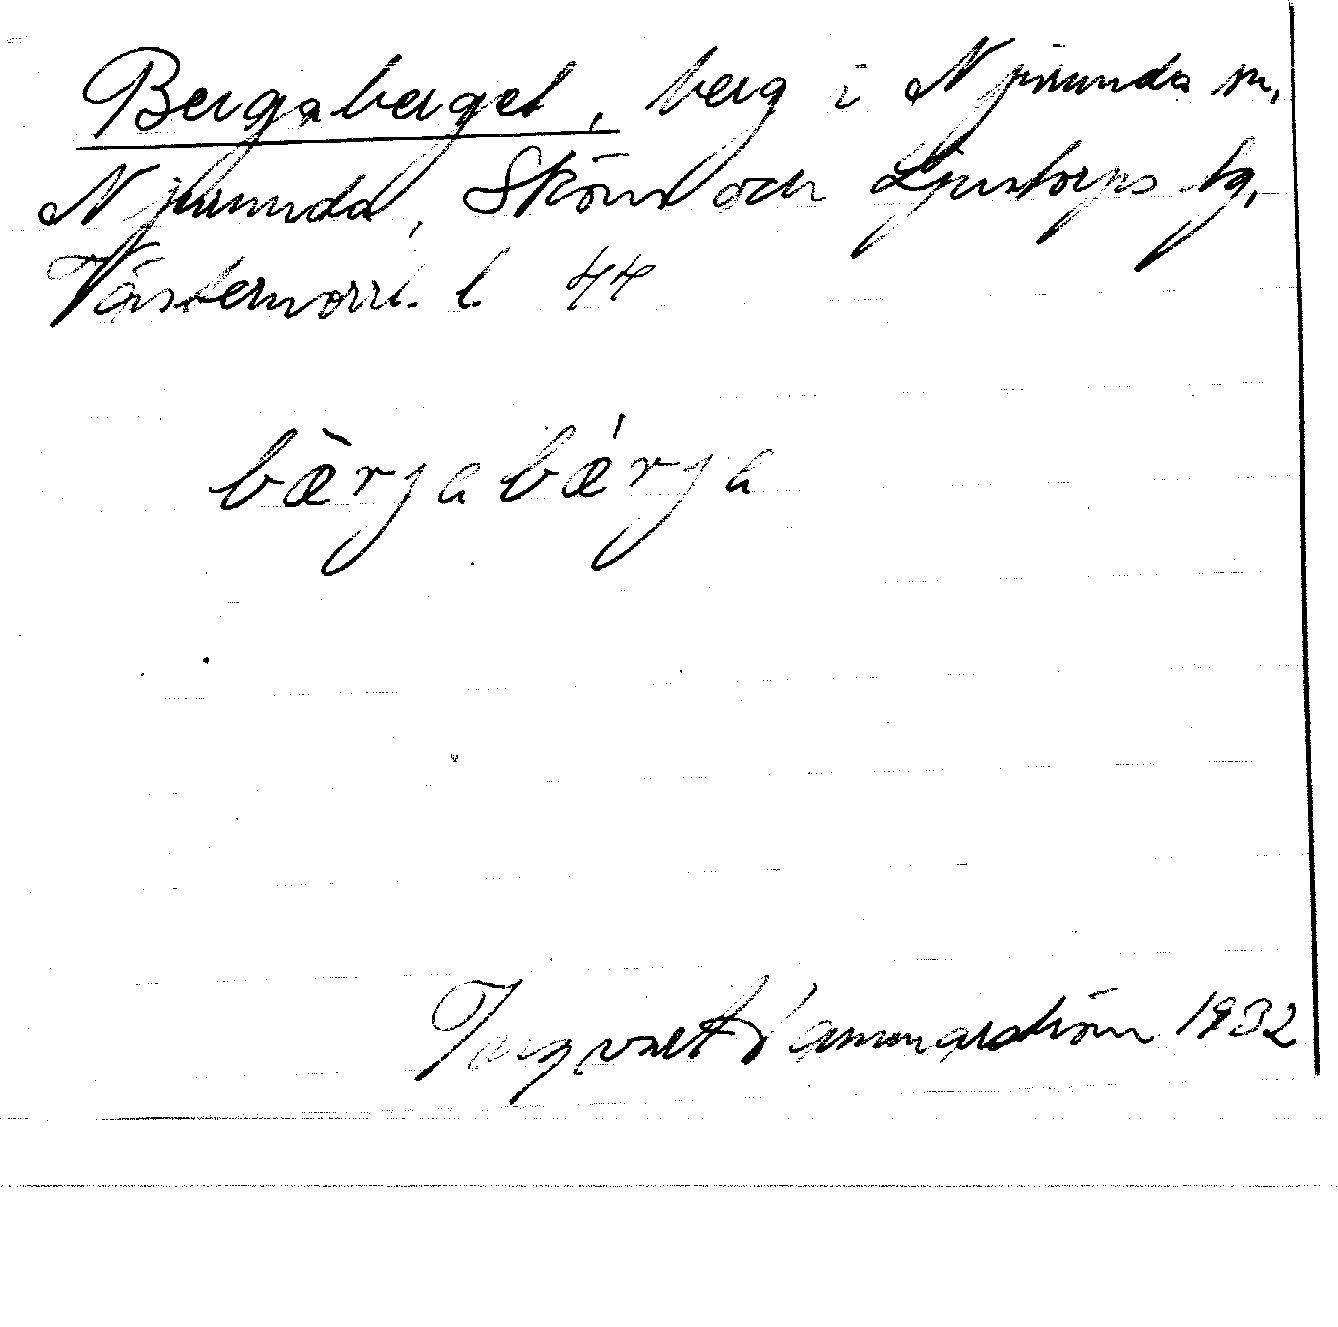 Bergaberget, berg i Njurunda sn,
Njurunda, Sköns och Ljustorps tg,
Västernorrl. l. 44
bæ̀rjabǽrja
Ingvald Hammarström 1932